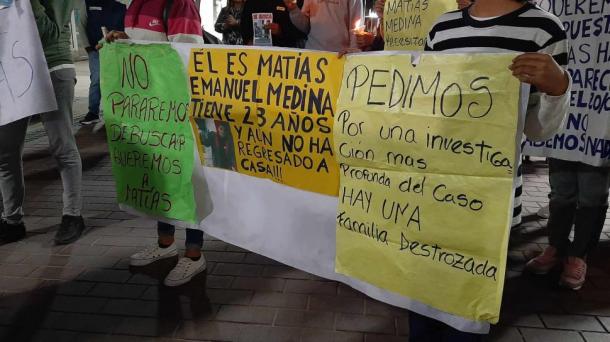 NO
PARAREMOS
DE BUSCAR
QUEREMOS
A
MATÍAS
ÉL ES MATÍAS
EMANUEL MEDINA
TIENE 23 AÑOS
Y AUN NO HA
REGRESADO A
CASA!!!
PEDIMOS
Por una investiga
ción mas
Profunda del Caso
HAY UNA
Familia Destrozada
MATÍAS
MEDINA
QUEREMOS